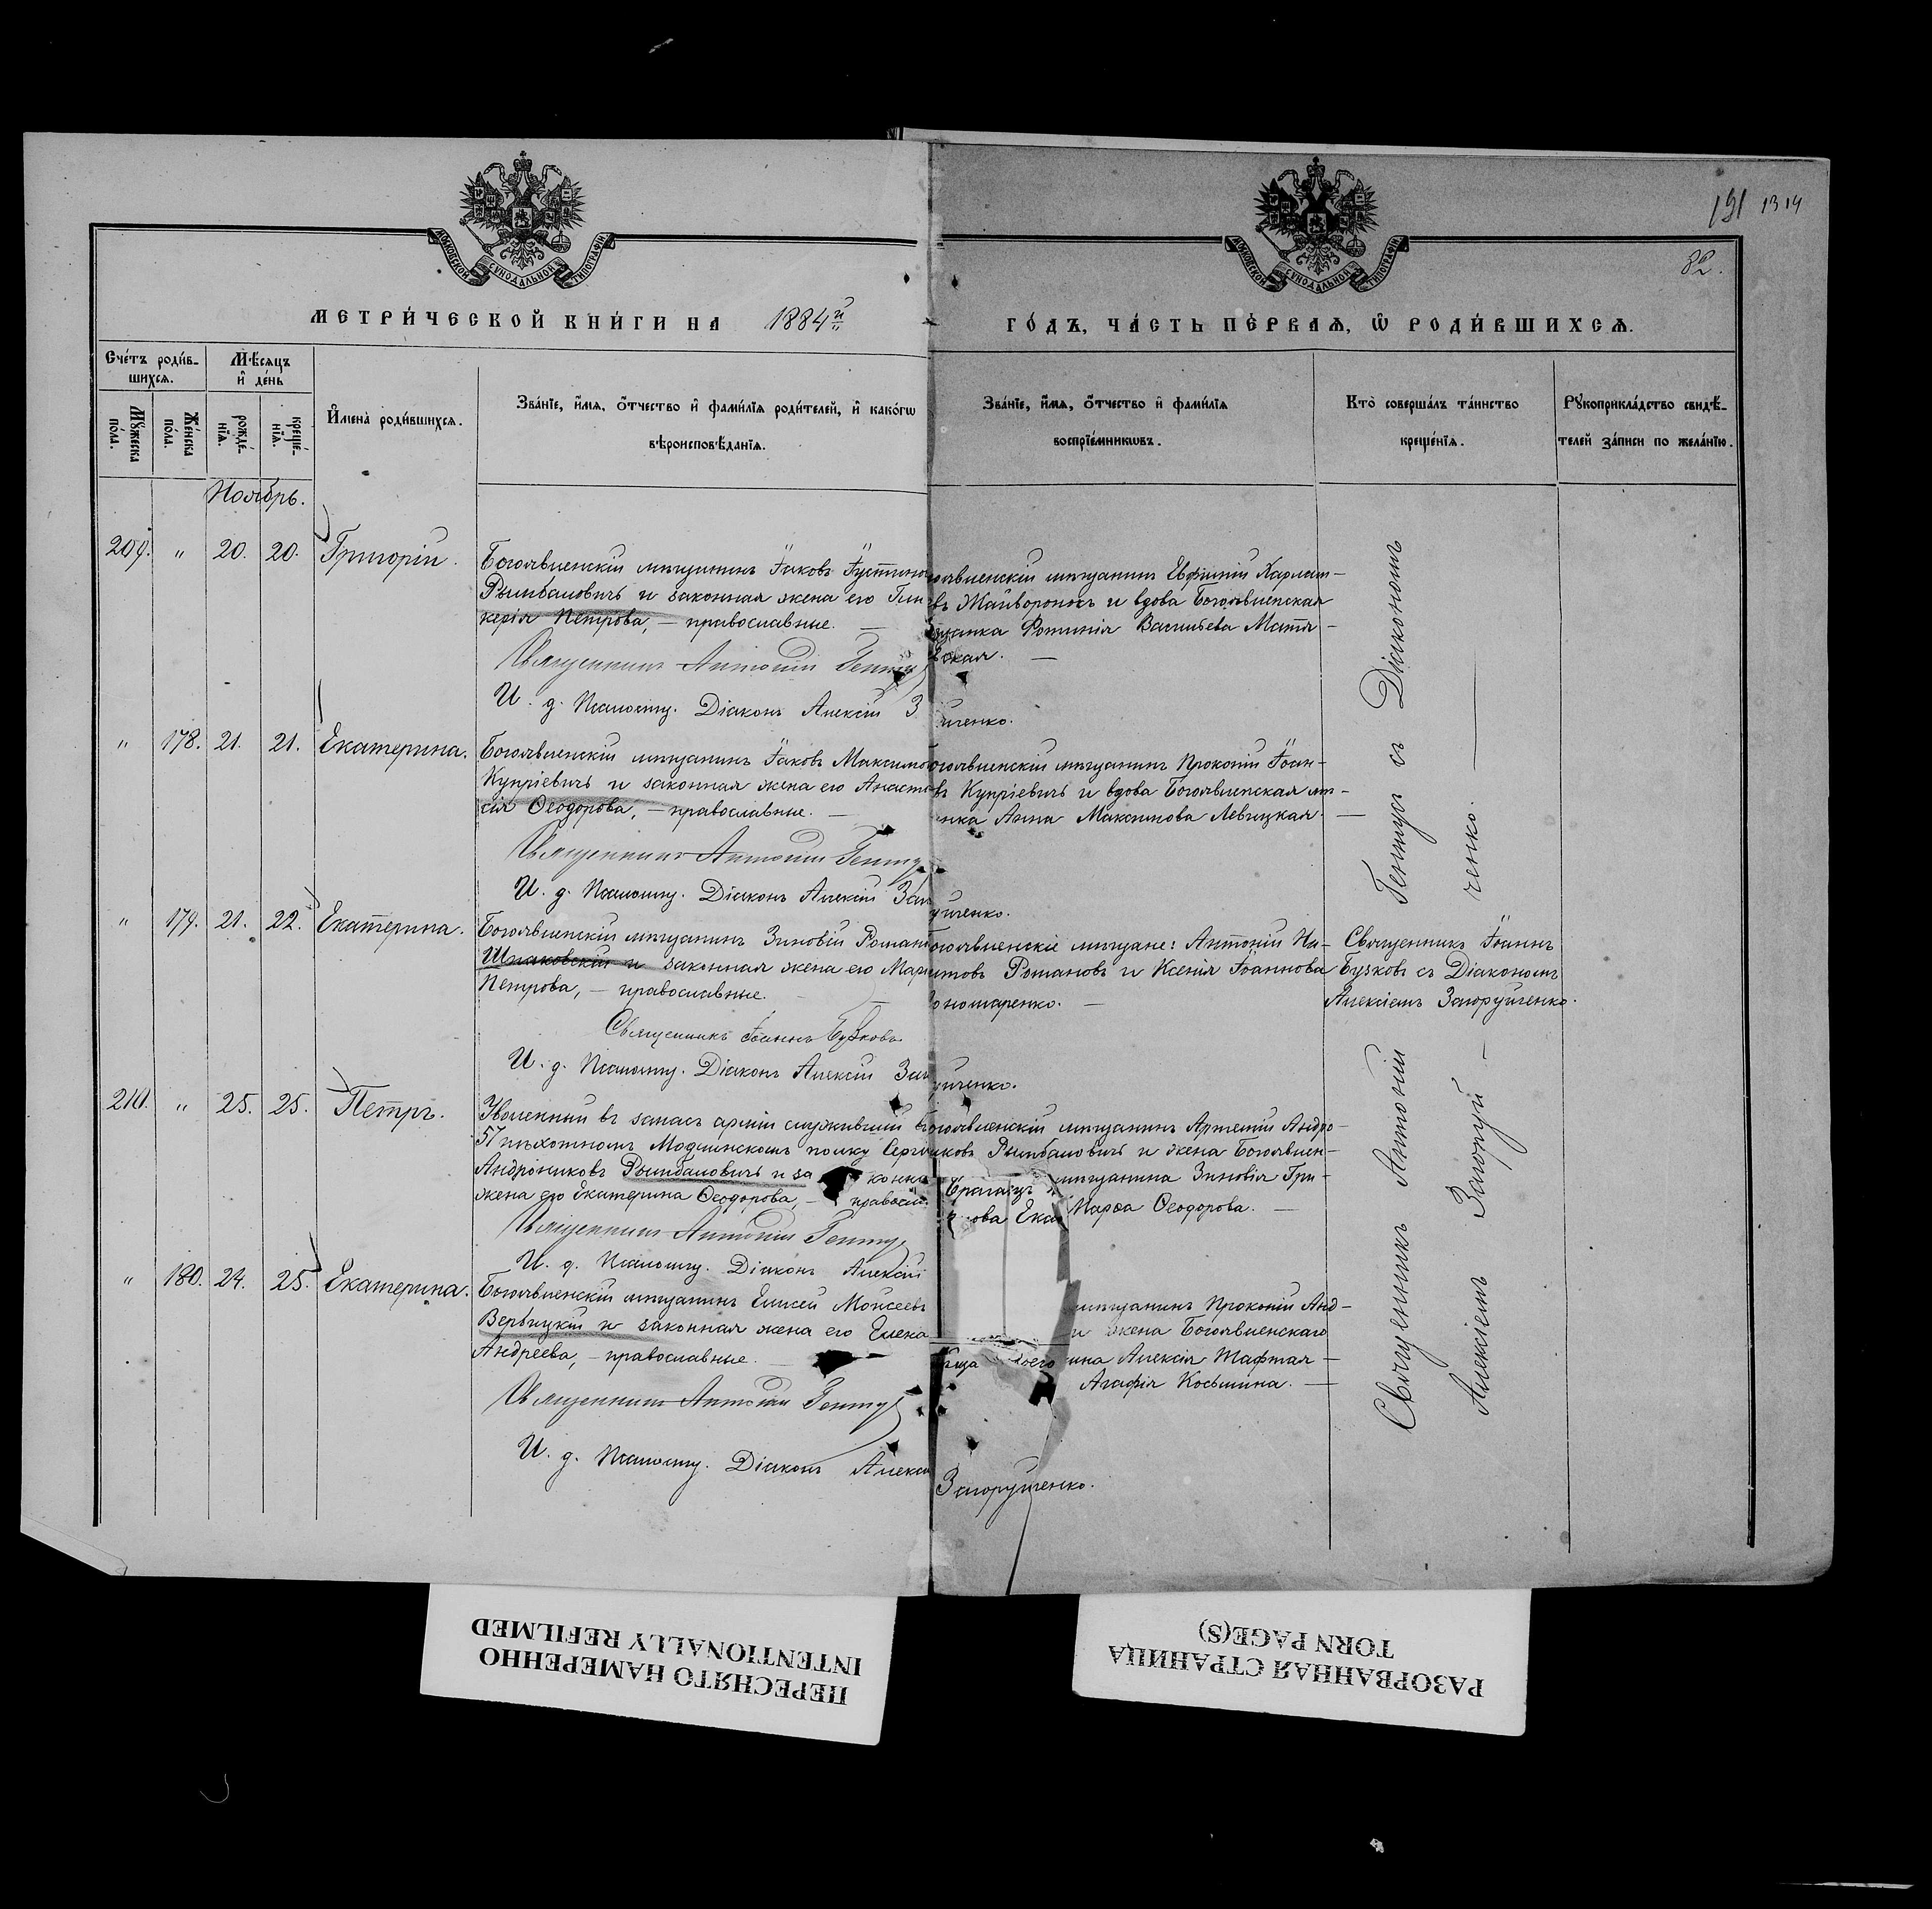 191 1314
82.
МОСКОВСКОЙ СѴНОДАЛЬНОЙ ТИПОГРАФІИ
МОСКОВСКОЙ СѴНОДАЛЬНОЙ ТИПОГРАФІИ
МЕТРИ́ЧЕСКОЙ КНИ́ГИ НА 1884й
ГО́ДЪ, ЧА́СТЬ ПЕ́РВАѦ, Ѿ РОДИ́ВШИХСѦ.
Сче́тъ роди́в-
шихсѧ.
Мѣ́сѧцъ
и҆ де́нь
Мꙋжеска по́ла.
Же́нска по́ла.
рожде́-нїѧ.
креще́-нїѧ.
И҆мена̀ роди́вшихсѧ.
Зва́нїе, и҆́мѧ, ѻ҆́тчество и҆ фами́лїѧ роди́телей, и҆ како́гѡ
вѣроисповѣ́данїѧ.
Зва́нїе, и҆́мѧ, ѻ҆́тчество и҆ фами́лїѧ
воспрїе́мникѡвъ.
Кто̀ соверша́лъ та́инство
креще́нїѧ.
Рꙋкоприкла́дство свидѣ́-
телей за́писи по жела́нїю.
Ноябрь.
209. " 20. 20. Григорій.
Богоявленскій мѣщанинъ Іаковъ Іустинов
Рымбаловичъ и законная жена его Гли
керія Петрова, — православные. —
Священникъ Антоній Гентуз
И. д. Псаломщ. Діаконъ Алексій З
оявленскій мѣщанинъ Евфимій Карлам-
въ Жайворонокъ и вдова Богоявленская
щанка Фотинія Васильева Матя-
ская. —
ченко.
" 178. 21. 21. Екатерина.
Богоявленскій мѣщанинъ Іаковъ Максимо
Купріевичъ и законная жена его Анаста
сія Ѳеодорова, — православные. —
Священникъ Антоній Гентуз
И. д. Псаломщ. Діаконъ Алексій Заг
огоявленскій мѣщанинъ Прокопій Іоан-
въ Купріевичъ и вдова Богоявленская мѣ-
нка Анна Максимова Левицкая. —
ченко.
" 179. 21. 22. Екатерина.
Богоявленскій мѣщанинъ Зиновій Роман
Шпаковскій и законная жена его Мар
Петрова, — православные. —
Священникъ Іоаннъ Бузковъ
И. д. Псаломщ. Діаконъ Алексій Заг
огоявленскіе мѣщане: Антоній Ни-
итовъ Романовъ и Ксенія Іоаннова
ономаренко. —
ченко.
Священникъ Іоаннъ
Бузковъ съ Діакономъ
Алексіемъ Загоруйченко.
210. " 25. 25. Петръ.
Уволенный въ запасъ арміи служившій в
57 пѣхотномъ Модлинскомъ полку Серг
Андрониковъ Рымбаловичъ и за конна
жена его Екатерина Ѳеодорова, — правосл.
Священникъ Антоній Гентуз
И. д. Псаломщ. Діаконъ Алексій
огоявленскій мѣщанинъ Артемій Андро-
иковъ Рымбаловичъ и жена Богоявлен-
мѣщанина Зиновія Гри-
ова Ека Марѳа Ѳеодорова. —
" 180. 24. 25. Екатерина.
Богоявленскій мѣщанинъ Елисей Моисеевъ
Вербицкій и законная жена его Елена
Андреева, — православные. —
Священникъ Антоній Гентуз
И. д. Псаломщ. Діаконъ Алекс
мѣщанинъ Прокопій Анд-
и жена Богоявленскаго
ина Алексія Шафтал-
Агафія Косьмина. —
Загоруйченко.
Священникъ Антоній Гентузъ съ Діакономъ
Алексіемъ Загоруй — ченко. —
ПЕРЕСНЯТО НАМЕРЕННО
INTENTIONALLY REFILMED
РАЗОРВАННАЯ СТРАНИЦА
TORN PAGE(S)